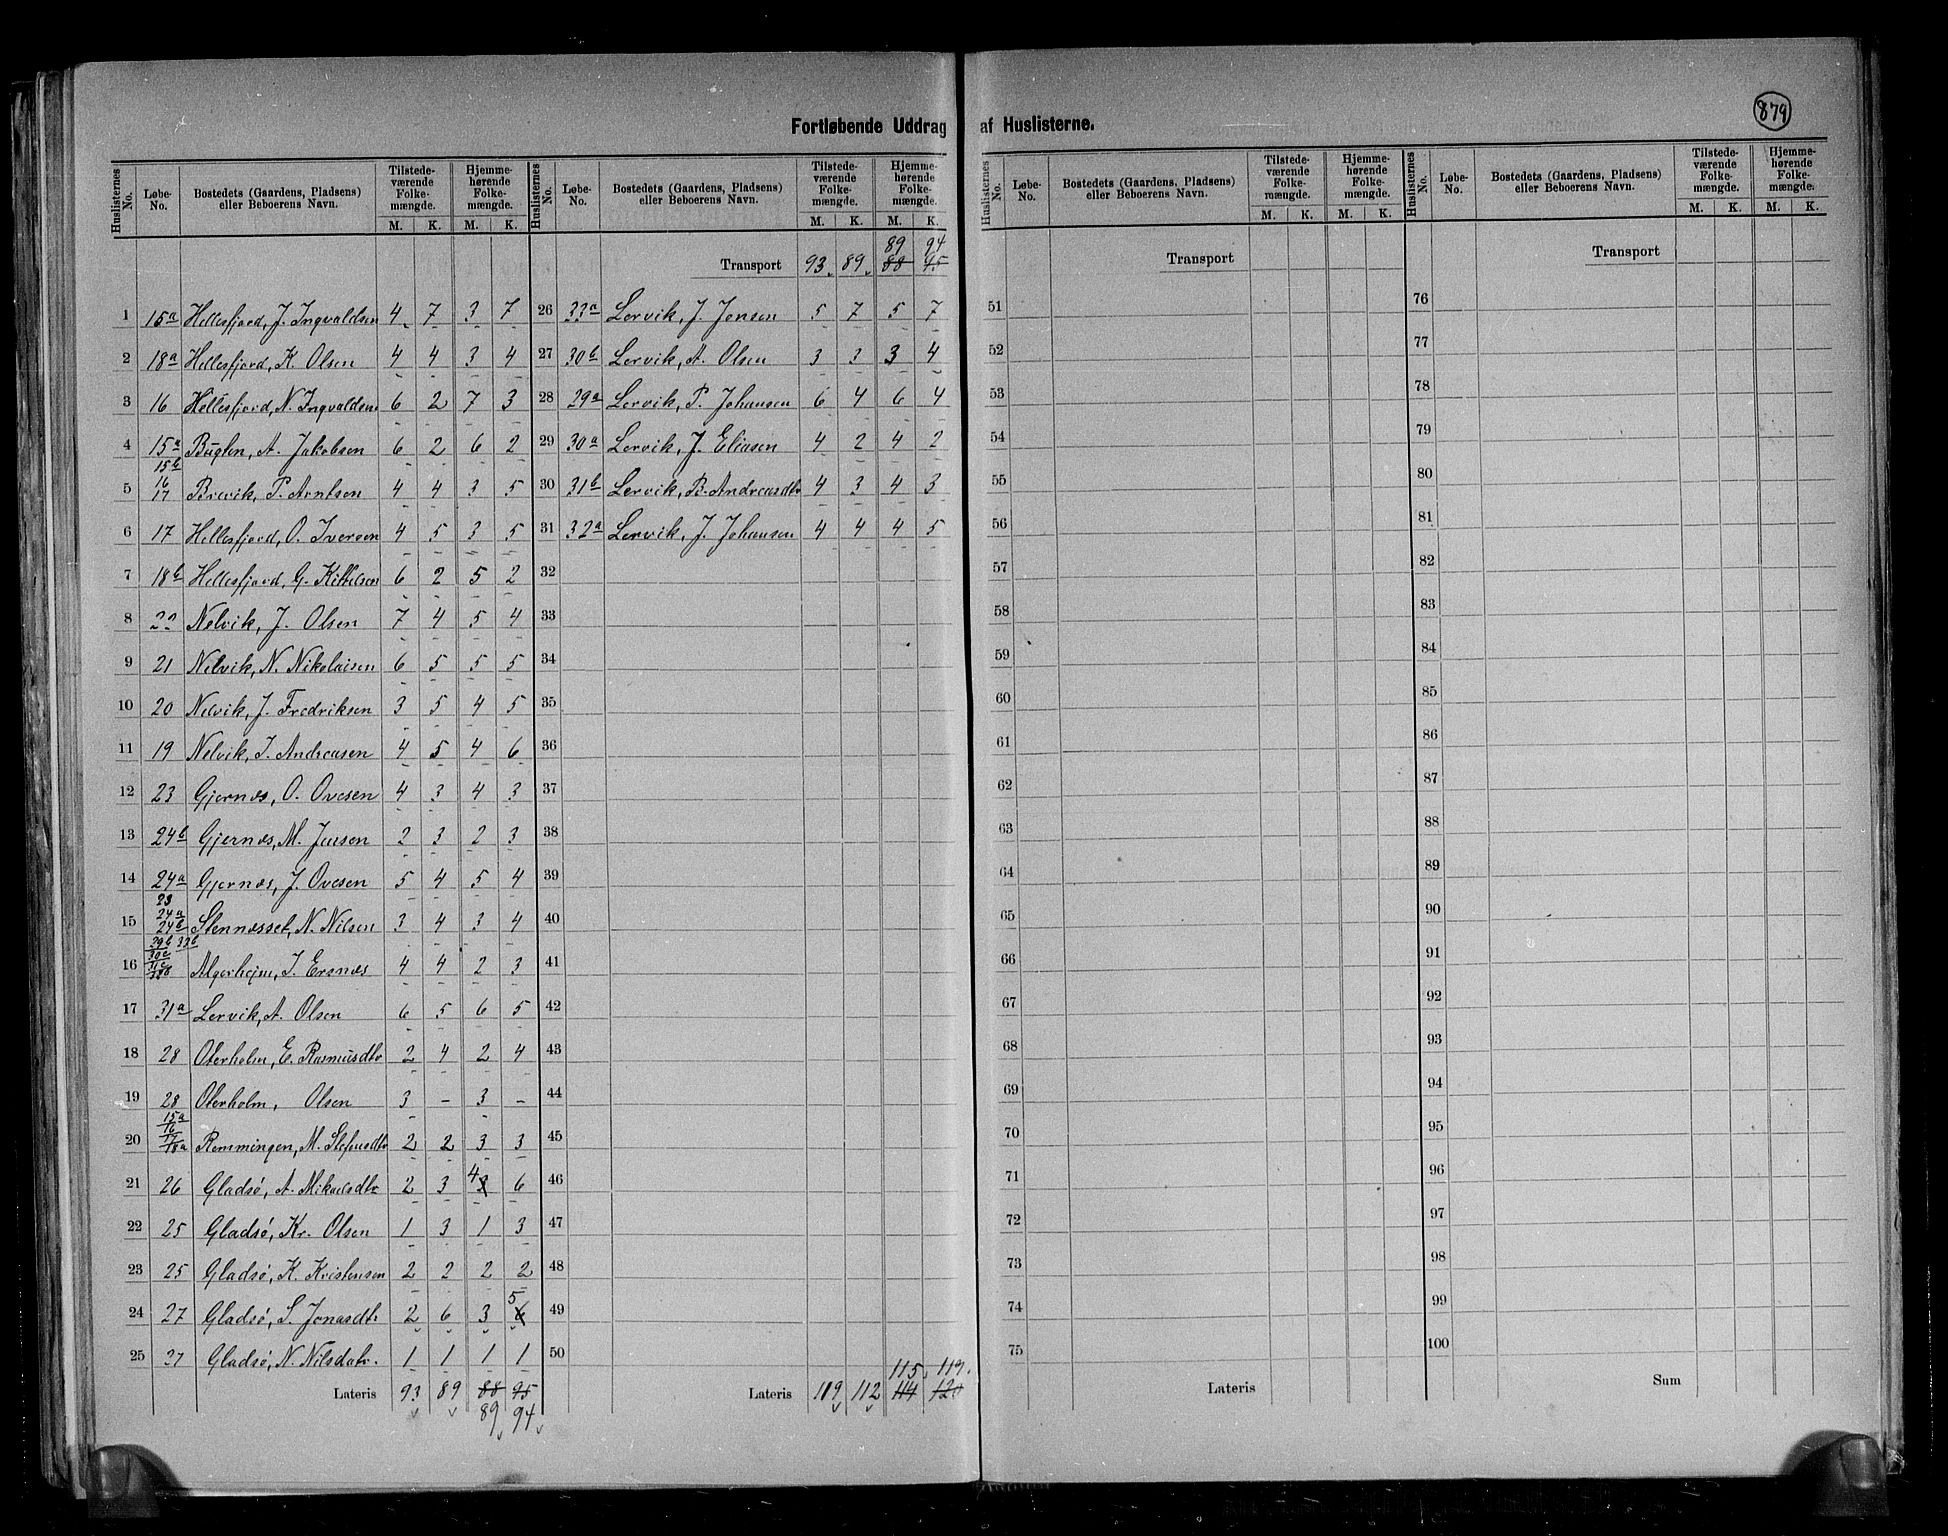 879
Fortløbende Uddrag af Huslisterne.
Huslisternes No. | Løbe-No. | Bostedets (Gaardens, Pladsens) eller Beboerens Navn. | Tilstedeværende Folkemængde. M. K. | Hjemmehørende Folkemængde. M. K.
1 15a Hellesfjord, J. Ingvaldsen 4 7 3 7
2 18a Hellesfjord, K. Olsen 4 4 3 4
3 16 Hellesfjord, N. Ingvaldsen 6 2 7 3
4 15a Buglen, A. Jakobsen 6 2 6 2
5 15b 16 17 Brevik, P. Arntsen 4 4 3 5
6 17 Hellesfjord, O. Iversen 4 5 3 5
7 18b Hellesfjord, G. Kittelsen 6 2 5 2
8 22 Nelvik, J. Olsen 7 4 5 4
9 21 Nelvik, N. Nikolaisen 6 5 5 5
10 20 Nelvik, J. Fredriksen 3 5 4 5
11 19 Nelvik, I. Andreasen 4 5 4 6
12 23 Gjernæs, O. Ovesen 4 3 4 3
13 24b Gjernæs, M. Jensen 2 3 2 3
14 24a Gjernæs, J. Ovesen 5 4 5 4
15 23 24a 24b Stennesset, N. Nilsen 3 4 3 4
16 Algerheim, I. Ersnæs 4 4 2 3
17 31a Lervik, A. Olsen 6 5 6 5
18 28 Oterholm, E. Rasmusdtr 2 4 2 4
19 28 Oterholm, Olsen 3 - 3 -
20 15a 16 17 18a Remmingen, M. Stefensdtr 2 2 3 3
21 26 Gladsø, A. Mikaelsdtr 2 3 4 3 6
22 25 Gladsø, Kr. Olsen 1 3 1 3
23 25 Gladsø, K. Kristensen 2 2 2 2
24 27 Gladsø, S. Jonasdtr 2 6 3 5 6
25 37 Gladsø, N. Nilsdatr. 1 1 1 1
Lateris 93 89 88 95
89 94
Huslisternes No. | Løbe-No. | Bostedets (Gaardens, Pladsens) eller Beboerens Navn. | Tilstedeværende Folkemængde. M. K. | Hjemmehørende Folkemængde. M. K.
89 94
Transport 93 89 88 95
26 33a Lervik, J. Jensen 5 7 5 7
27 30b Lervik, A. Olsen 3 3 3 4
28 29a Lervik, P. Johansen 6 4 6 4
29 30a Lervik, J. Eliasen 4 2 4 2
30 31b Lervik, B. Andreasdtr 4 3 4 3
31 32a Lervik, J. Johansen 4 4 4 5
32
33
34
35
36
37
38
39
40
41
42
43
44
45
46
47
48
49
50
115 119.
Lateris 119 112 114 120
Huslisternes No. | Løbe-No. | Bostedets (Gaardens, Pladsens) eller Beboerens Navn. | Tilstedeværende Folkemængde. M. K. | Hjemmehørende Folkemængde. M. K.
Transport
51
52
53
54
55
56
57
58
59
60
61
62
63
64
65
66
67
68
69
70
71
72
73
74
75
Lateris
Huslisternes No. | Løbe-No. | Bostedets (Gaardens, Pladsens) eller Beboerens Navn. | Tilstedeværende Folkemængde. M. K. | Hjemmehørende Folkemængde. M. K.
Transport
76
77
78
79
80
81
82
83
84
85
86
87
88
89
90
91
92
93
94
95
96
97
98
99
100
Sum